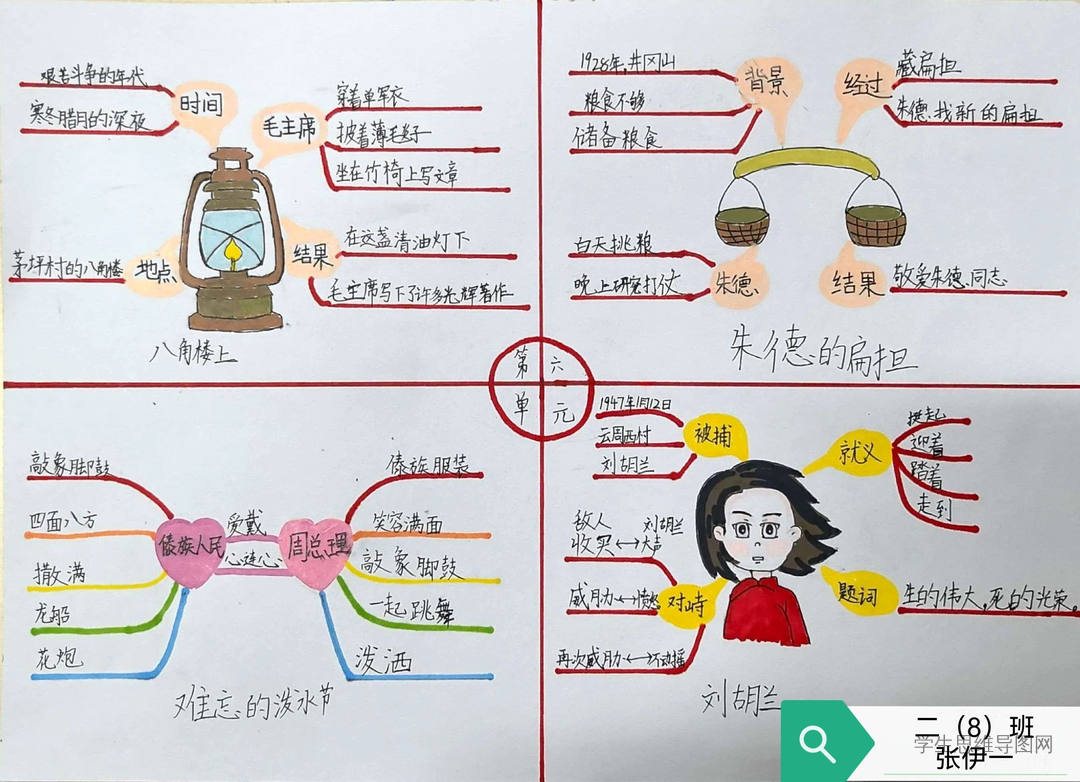 艰苦斗争的年代
寒冬腊月的深夜
时间
毛主席
穿着单军衣
披着薄毛毯子
坐在竹椅上写文章
茅坪村的八角楼
地点
结果
在这盏清油灯下
毛主席写下了许多光辉著作
八角楼上
1928年,井冈山
粮食不够
储备粮食
背景
经过
藏扁担
朱德找新的扁担
白天挑粮
晚上研究打仗
朱德
结果
敬爱朱德同志
朱德的扁担
第六
单元
敲象脚鼓
四面八方
撒满
龙船
花炮
傣族人民
爱戴
心连心
周总理
傣族服装
笑容满面
敲象脚鼓
一起跳舞
泼洒
难忘的泼水节
1947年1月12日
云周西村
刘胡兰
被捕
就义
挺起
迎着
踏着
走到
敌人 刘胡兰
收买↔大声
威胁↔愤怒
再次威胁↔不动摇
对峙
题词
生的伟大,死的光荣。
刘胡兰
二（8）班
学生思维导图网
张伊一